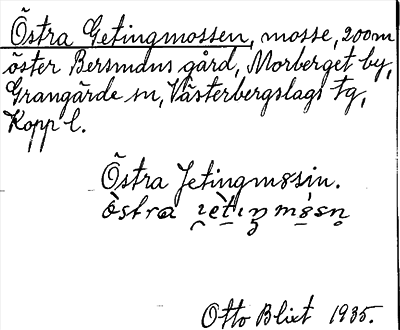 Östra Getingmossen, mosse, 200m
öster Bersmans gård, Morberget by,
Grangärde sn, Västerbergslags tg,
Kopp l.
Östra Jetingmåsin.
òstra
Otto Blixt 1935.